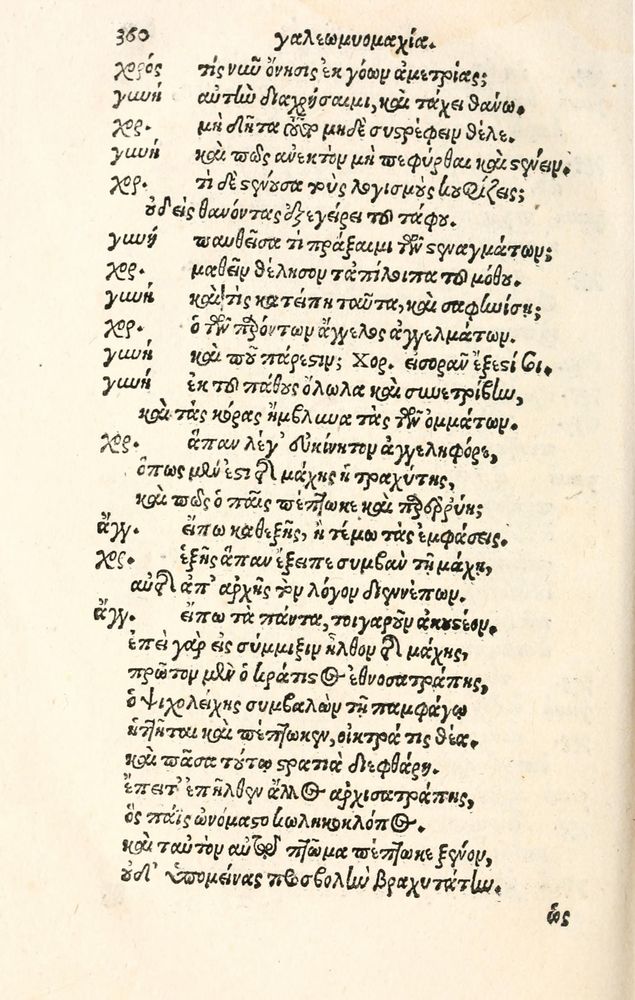 360 γαλεωμυομαχία.
χορός τίς νῦν ὄνησις ἐκ γόων ἀμετρίας;
γυνή αὐτὴν διαχρήσαιμι, καὶ τάχει θάνω.
χορ. μὴ δῆτα μηδὲ συστρέφειν θέλε.
γυνή καὶ πῶς ἀνεκτὸν μὴ πεφύρθαι καὶ στένειν.
χορ. τί δὲ στένουσα τοὺς λογισμοὺς κουφίζεις;
οὐδεὶς θανόντας ἐξεγείρει τοῦ τάφου.
γυνή παυθεῖσα τί πράξαιμι τῶν στεναγμάτων;
χορ. μαθεῖν θέλησον τἀπίλοιπα τοῦ μόθου.
γυνή καὶ τίς κατείπῃ ταῦτα, καὶ σαφηνίσῃ;
χορ. ὁ τῶν παρόντων ἄγγελος ἀγγελμάτων.
γυνή καὶ ποῦ πάρεστιν; Χορ. εἰσορᾶν ἔξεστί σοι.
γυνή ἐκ τοῦ πάθους ὄλωλα καὶ συνετρίβην,
καὶ τὰς κόρας ἤμβλυνα τὰς τῶν ὀμμάτων.
χορ. ἅπαν λέγ' εὐκίνητον ἀγγεληφόρε,
ὅπως μὲν ἐστι τῆς μάχης ἡ τραχύτης,
καὶ πῶς ὁ παῖς πέπτωκε καὶ προερρύη;
ἄγγ. εἴπω καθεξῆς, ἢ τέμω τὰς ἐμφάσεις.
χορ. ἑξῆς ἅπαν ἔξειπε συμβὰν τῇ μάχῃ,
αὐτῆς ἀπ' ἀρχῆς τὸν λόγον διεννέπων.
ἄγγ. εἴπω τὰ πάντα, τοιγαροῦν ἀκουστέον.
ἐπεὶ γὰρ εἰς σύμμιξιν ἦλθον τῆς μάχης,
πρῶτον μὲν ὁ κράτιστος ἐθνοσατράπης,
ὁ ψιχολείχης συμβαλὼν τῇ παμφάγῳ
ἥττηται καὶ πέπτωκεν, οἰκτρά τις θέα.
καὶ πᾶσα τούτῳ στρατιὰ διεφθάρη.
ἔπειτ' ἐπῆλθεν ἄλλος ἀρχισατράπης,
ὃς παῖς ὠνόμαστο κωληκοκλόπος.
καὶ ταὐτὸν αὐτῷ πτῶμα πέπτωκε ξένον,
οὐδ' ὑπομείνας προσβολὴν βραχυτάτην.
ὡς